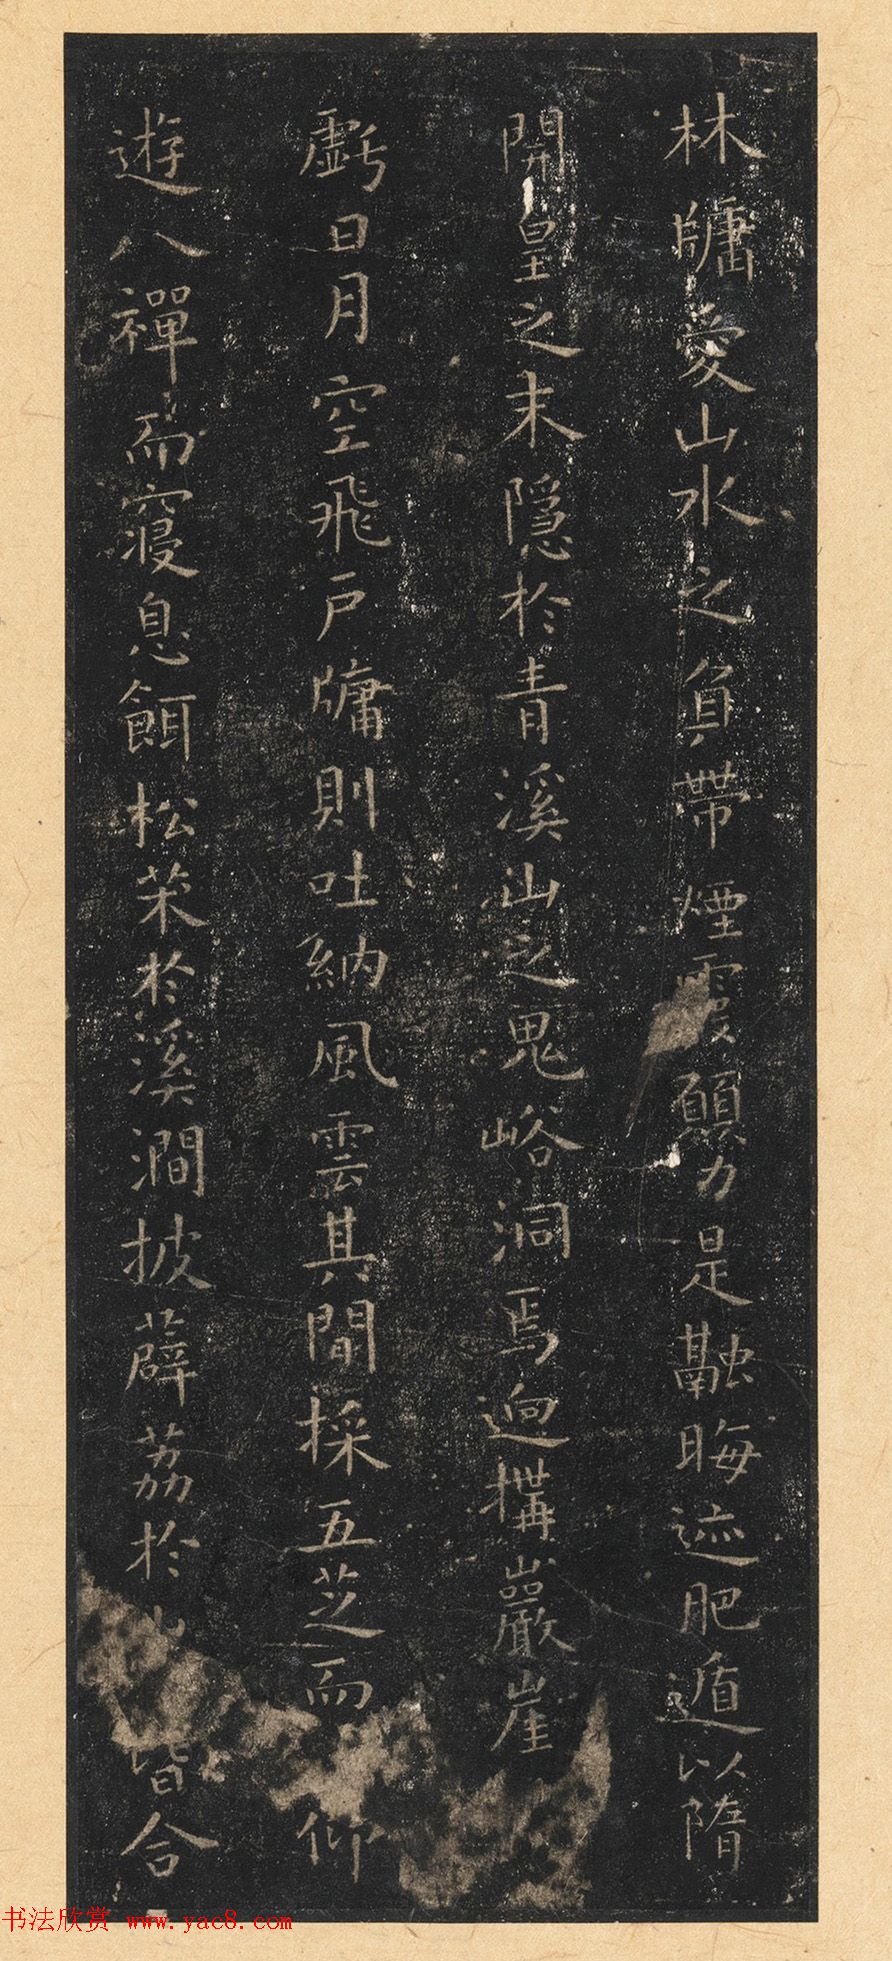 林牖愛山水之負帶煙霞願力是融晦迹肥遁以隋
開皇之末隱於青溪山之鬼峪洞焉迥構巖崖
虧日月空飛戶牖則吐納風雲其間採五芝而仰
遊八禪而寢息餌松朮於溪澗披薜荔於山皆合
书法欣赏 www.yac8.com